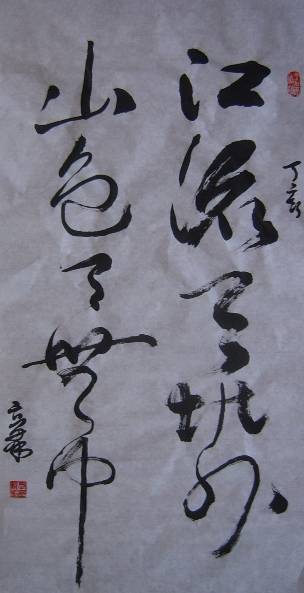 丁亥
江流天地外
山色有無中